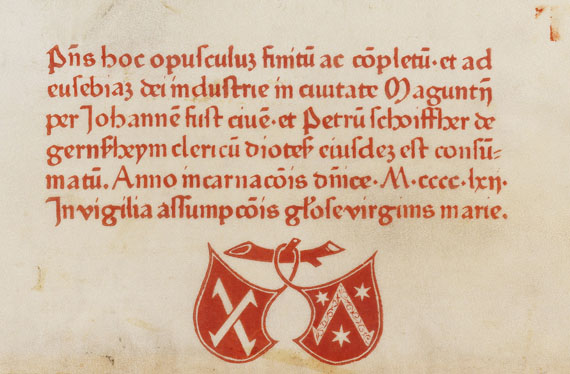 Pn̄s hoc opusculuz finitū ac cōpletū· et ad
eusebiaz dei industrie in ciuitate Maguntij
per Johannē fust ciuē· et Petrū schoiffher de
gernsz̄heym clericū diotes̄ eiusdez est consū-
matū. Anno incarnacōis dn̄ice· M·cccc·lxij·
In vigilia assumpcōis gl̄ose virginis marie.